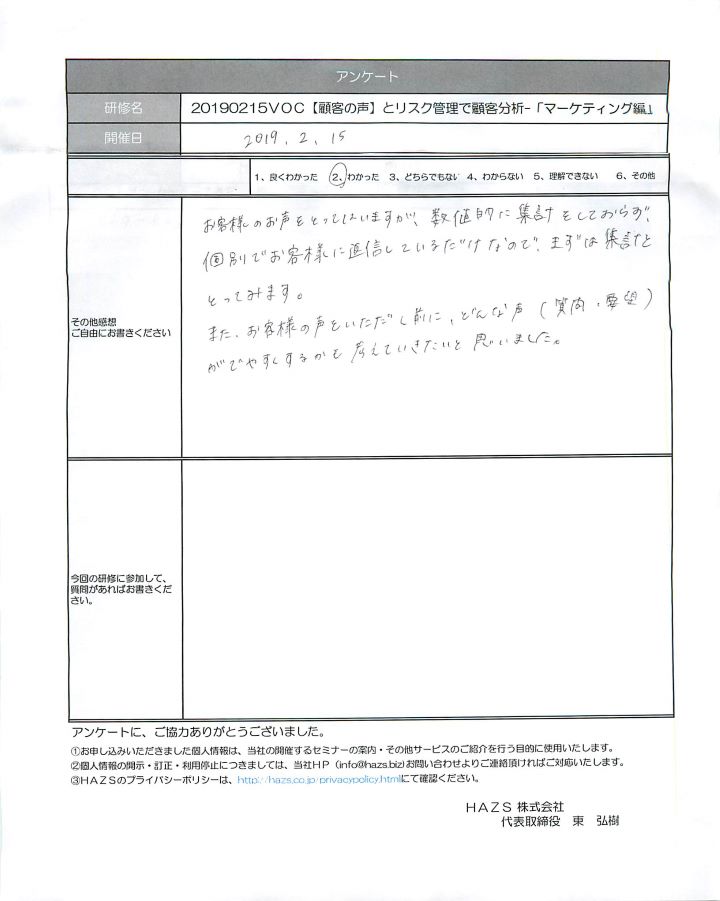 アンケート
研修名
20190215VOC【顧客の声】とリスク管理で顧客分析-「マーケティング編」
開催日
2019.2.15
1、良くわかった 2、わかった 3、どちらでもない 4、わからない 5、理解できない 6、その他
お客様のお声をとってはいますが、数値的に集計をしておらず、
個別でお客様に返信しているだけなので、まずは集計を
とってみます。
また、お客様の声をいただく前に、どんな声(質問、要望)
がでやすくするかを考えていきたいと思いました。
その他感想
ご自由にお書きください
今回の研修に参加して、
質問があればお書きくだ
さい。
アンケートに、ご協力ありがとうございました。
①お申し込みいただきました個人情報は、当社の開催するセミナーの案内・その他サービスのご紹介を行う目的に使用いたします。
②個人情報の開示・訂正・利用停止につきましては、当社HP(info@hazs.biz)お問い合わせよりご連絡頂ければご対応いたします。
③HAZSのプライバシーポリシーは、http://hazs.co.jp/privacypolicy.htmlにて確認ください。
HAZS 株式会社
代表取締役 東 弘樹